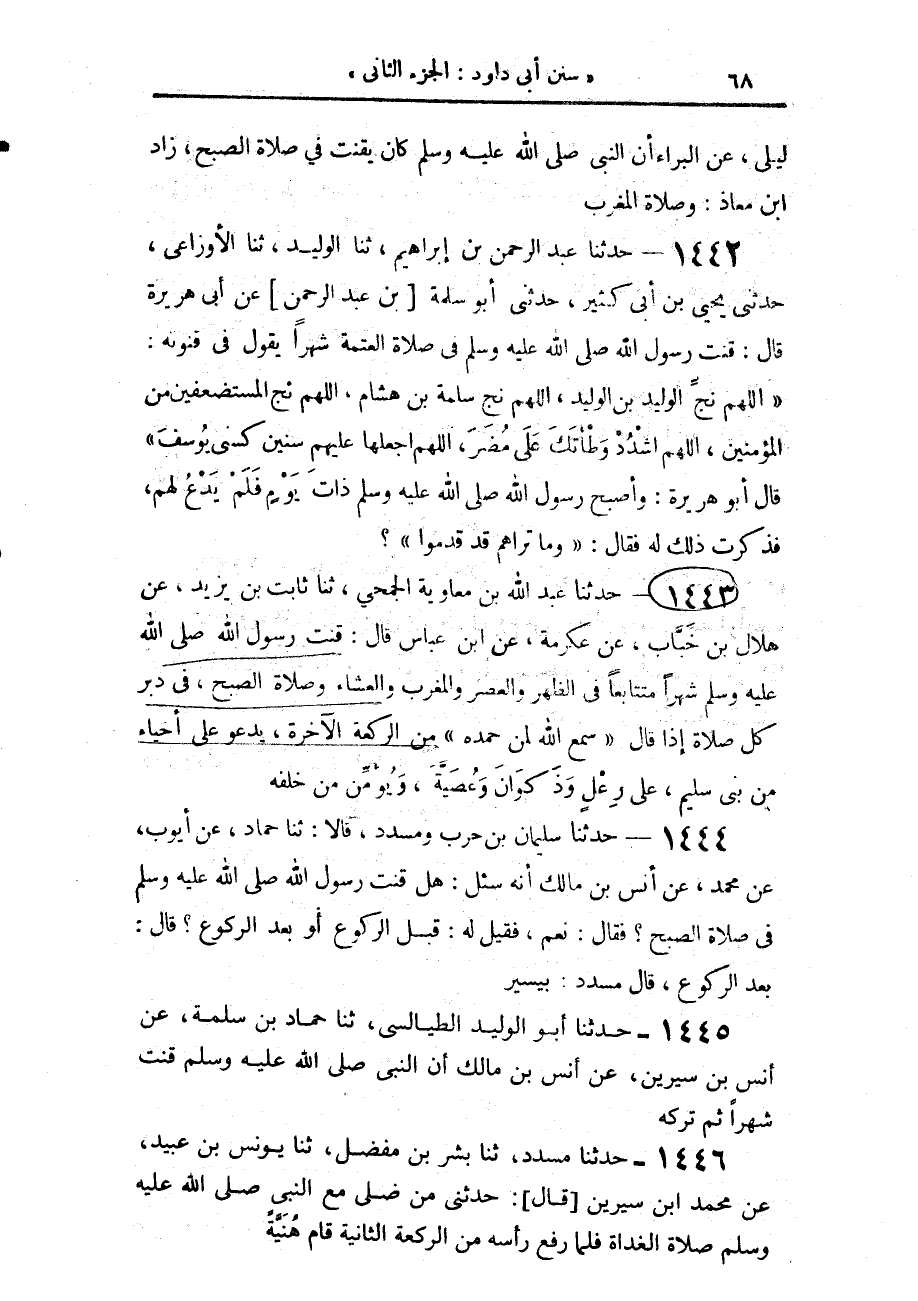 « سنن أبى داود : الجزء الثانى »
٦٨
ليلى ، عن البراء أن النبى صلى الله عليه وسلم كان يقنت في صلاة الصبح، زاد
ابن معاذ : وصلاة المغرب
١٤٤٢ — حدثنا عبد الرحمن بن إبراهيم ، ثنا الوليد ، ثنا الأوزاعى ،
حدثنى يحيي بن أبى كثير ، حدثنى أبو سلمة [ بن عبد الرحمن ] عن أبى هريرة
قال : قنت رسول الله صلى الله عليه وسلم فى صلاة العتمة شهراً يقول فى قنوته :
« اللهم نجِّ الوليد بن الوليد ، اللهم نج سلمة بن هشام ، اللهم نج المستضعفين من
المؤمنين ، اللهم اشْدُدْ وَطْأتَكَ عَلَى مُضَرَ، اللهم اجعلها عليهم سنين كسنى يُوسفَ»
قال أبو هريرة : وأصبح رسول الله صلى الله عليه وسلم ذاتَ يَوْمٍ فَلَمْ يَدْعُ لهم،
فذكرت ذلك له فقال : « وما تراهم قد قدموا » ؟
١٤٤٣ — حدثنا عبد الله بن معاوية الجمحي ، ثنا ثابت بن يزيد ، عن
هلال بن خَبَّاب ، عن عكرمة ، عن ابن عباس قال : قنت رسول الله صلى الله
عليه وسلم شهراً متتابعاً فى الظهر والعصر والمغرب والعشاء وصلاة الصبح ، فى دبر
كل صلاة إذا قال « سمع الله لمن حمده » من الركعة الآخرة ، يدعو على أحياء
من بنى سليم ، على رِعْلٍ وَذَكوَانَ وَعُصَيَّةَ ، وَيُؤَمِّن من خلفه
١٤٤٤ — حدثنا سليمان بن حرب ومسدد ، قالا : ثنا حماد ، عن أيوب،
عن محمد ، عن أنس بن مالك أنه سئل : هل قنت رسول الله صلى الله عليه وسلم
فى صلاة الصبح ؟ فقال : نعم ، فقيل له : قبل الركوع أو بعد الركوع ؟ قال :
بعد الركوع ، قال مسدد : بيسير
١٤٤٥ ـ حدثنا أبو الوليد الطيالسى، ثنا حماد بن سلمة، عن
أنس بن سيرين، عن أنس بن مالك أن النبى صلى الله عليه وسلم قنت
شهراً ثم تركه
١٤٤٦ ـ حدثنا مسدد، ثنا بشر بن مفضل، ثنا يونس بن عبيد،
عن محمد ابن سيرين [قال]: حدثنى من صلى مع النبى صلى الله عليه
وسلم صلاة الغداة فلما رفع رأسه من الركعة الثانية قام هُنَيَّةً